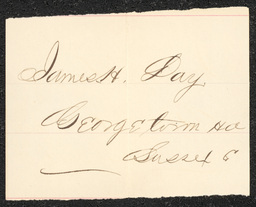 James H. Day
Georgetown Hd
Sussex C